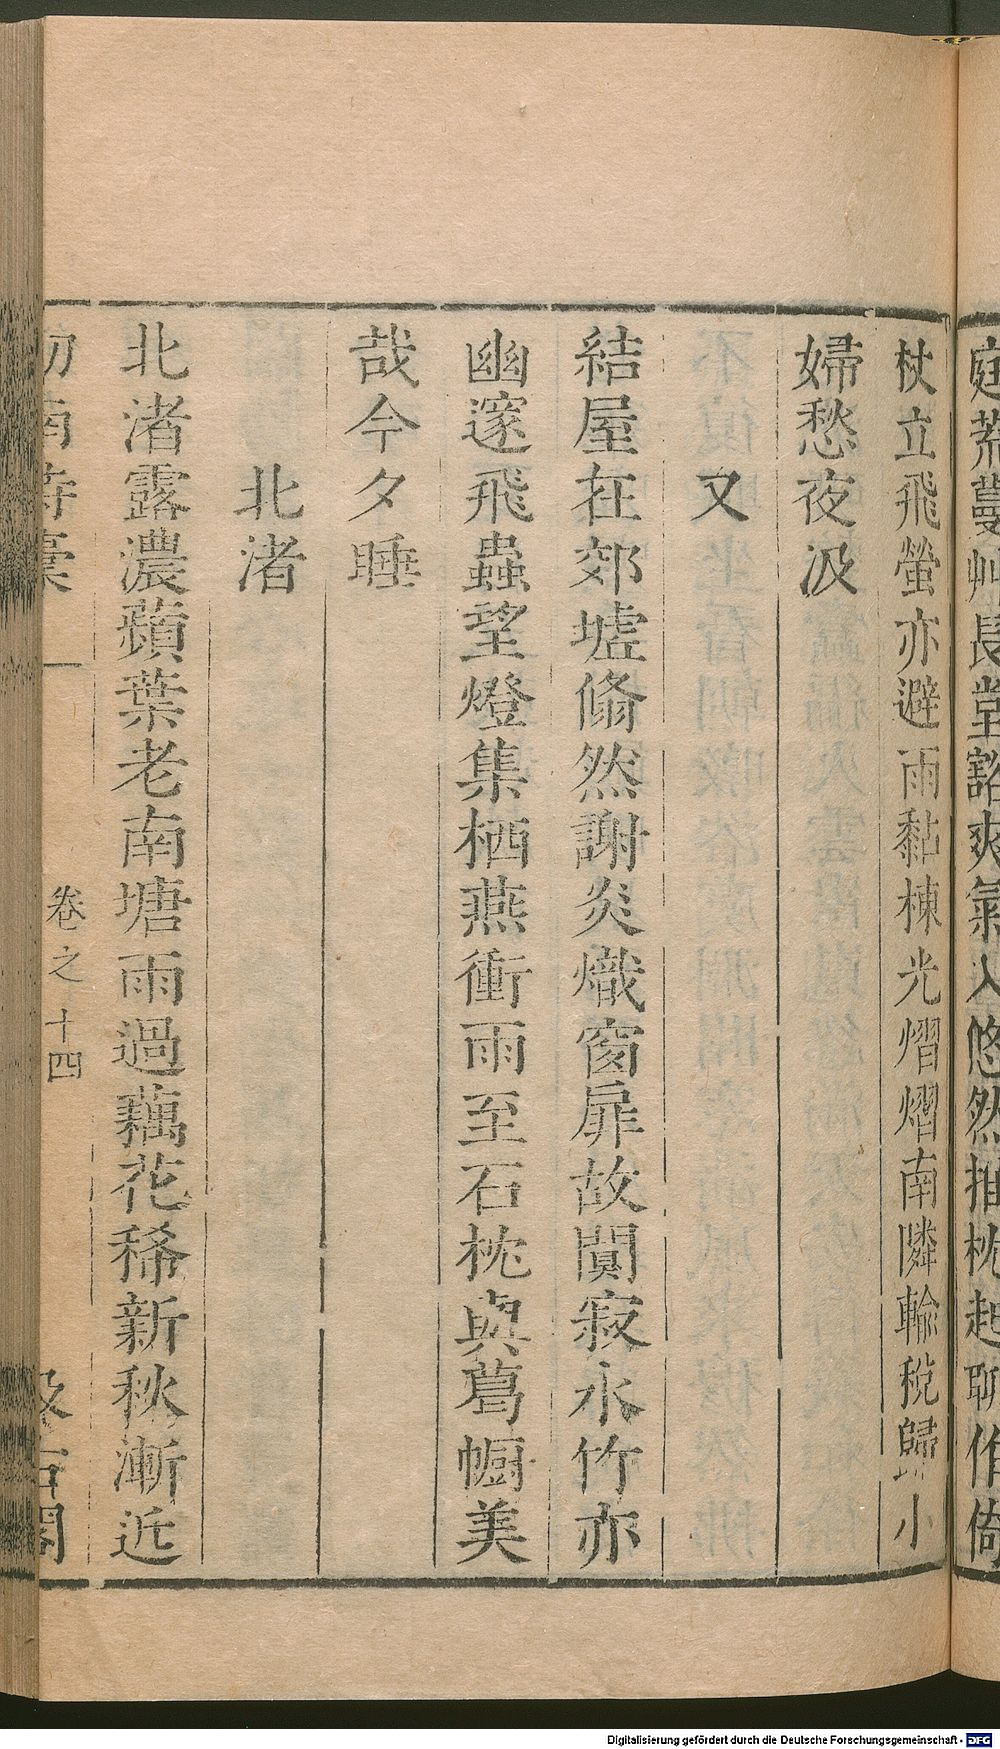 庭荒蔓艸長堂豁爽氣入悠然推枕起聊作倚
杖立飛螢亦避雨黏棟光熠熠南隣輸稅歸小
婦愁夜汲
又
結屋在郊墟翛然謝炎熾窗扉故闃寂水竹亦
幽邃飛蟲望燈集栖燕衝雨至石枕與葛幮美
哉今夕睡
北渚
北渚露濃蘋葉老南塘雨過藕花稀新秋漸近
劒南詩稾 卷之十四 汲古閣
Digitalisierung gefördert durch die Deutsche Forschungsgemeinschaft - DFG